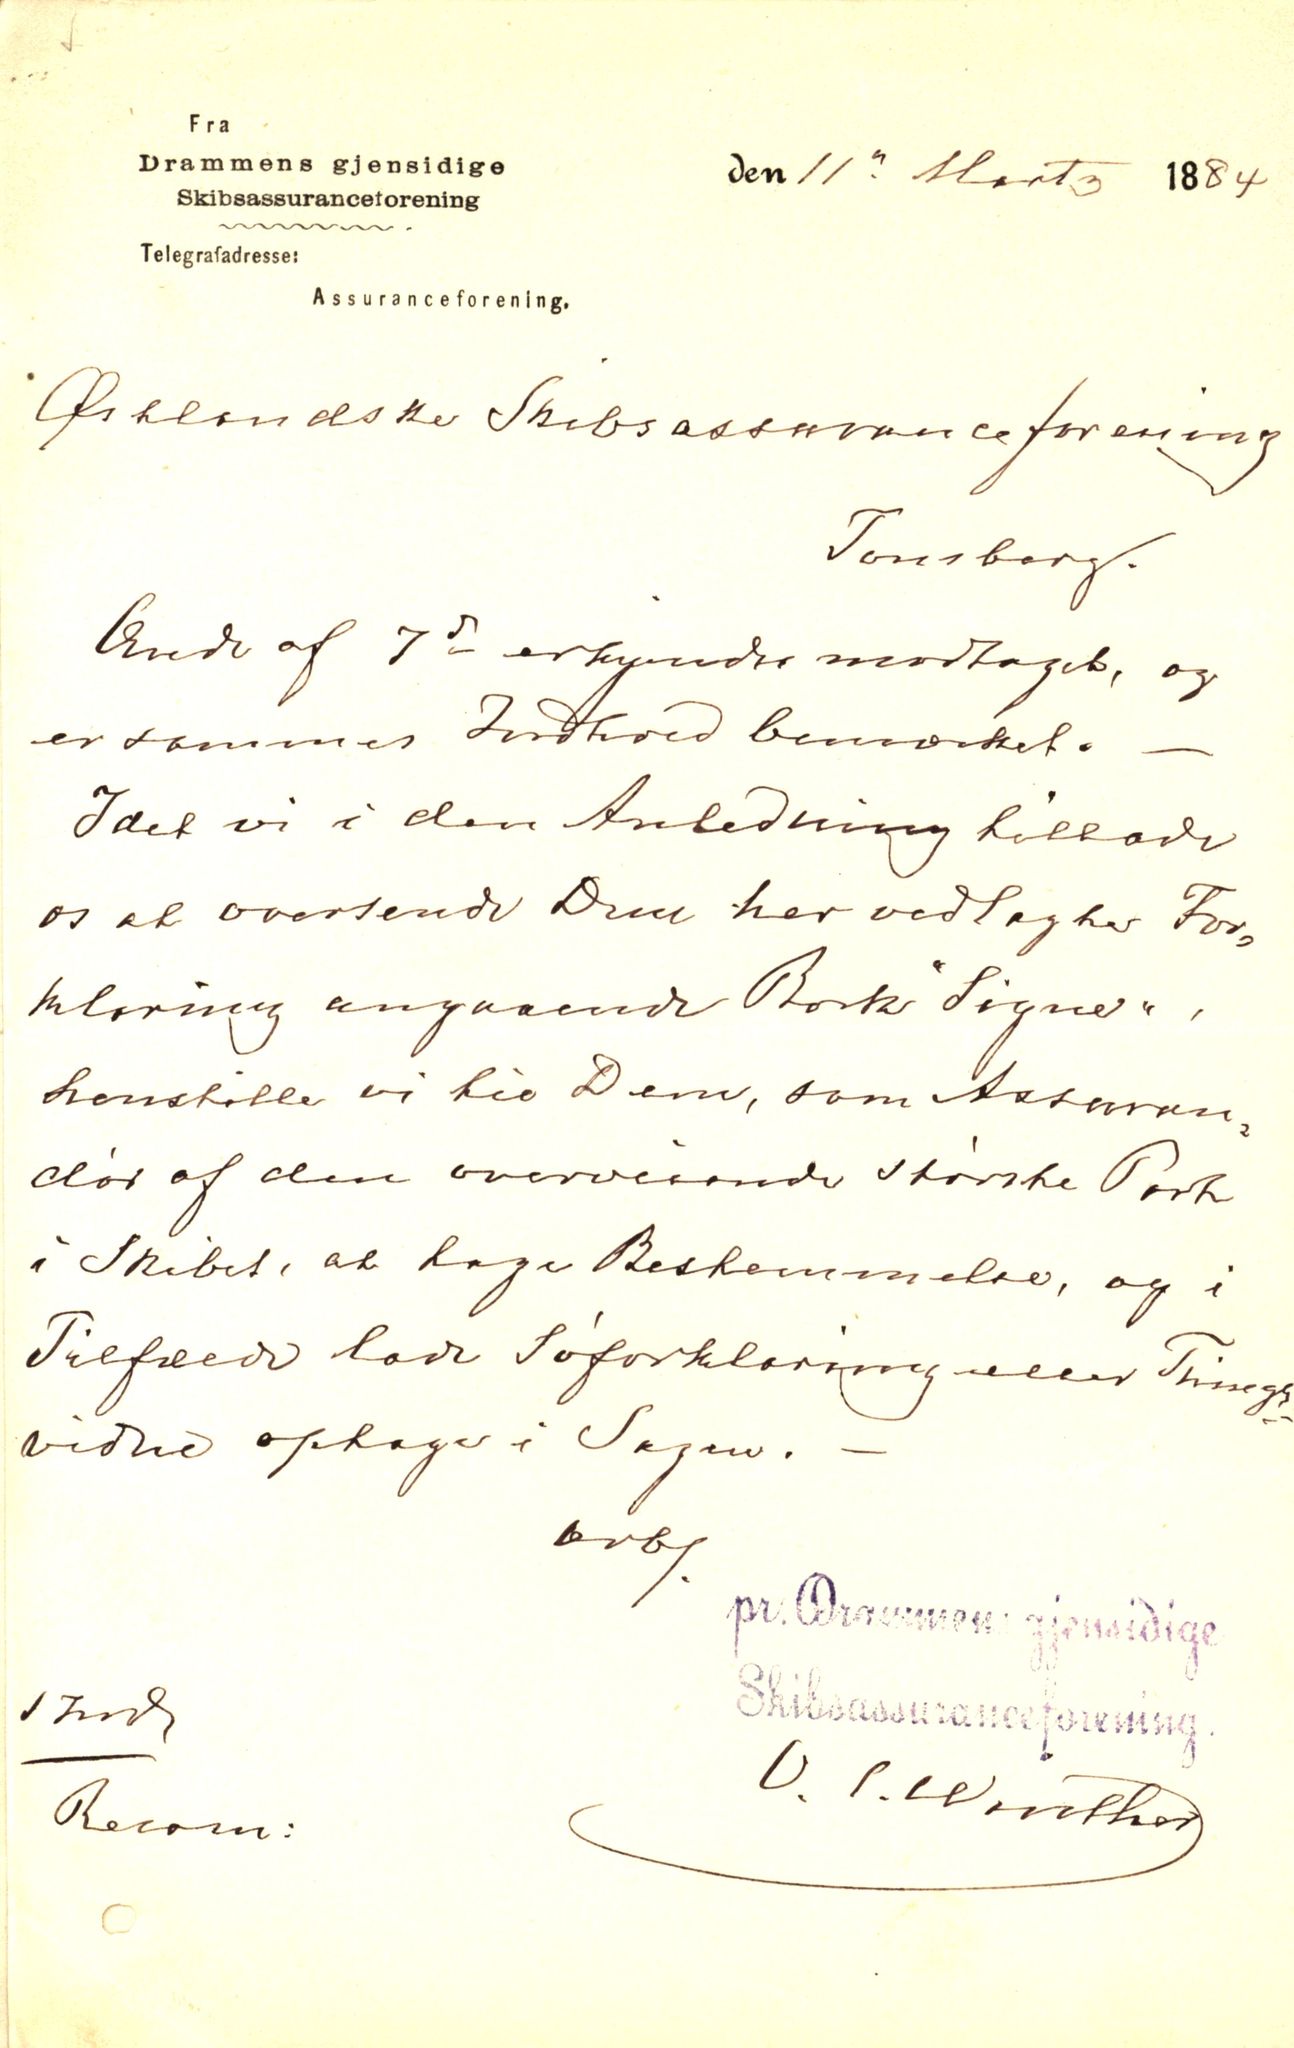 Fra
Drammens gjensidige
Skibsassuranceforening
Telegrafadresse:
Assuranceforening.
den 11te Martz 1884
Østlandske Skibsassuranceforening
Tønsberg.
Ærede af 7de erkjendes modtaget, og
er sammes Indhold bemærket. —
Idet vi i den Anledning tillade
os at oversende Dem her vedlagte For-
klaring angaaende Bark "Signe",
henstille vi til Dem, som Assuran-
dør af den overveiende største Part
i Skibet, at tage Bestemmelse, og i
Tilfælde lade Søforklaring eller Things-
vidne optage i Sagen. —
ærb.
pr. Drammens gjensidige
Skibsassuranceforening.
O. C. Winther
1 Indl
Recom: